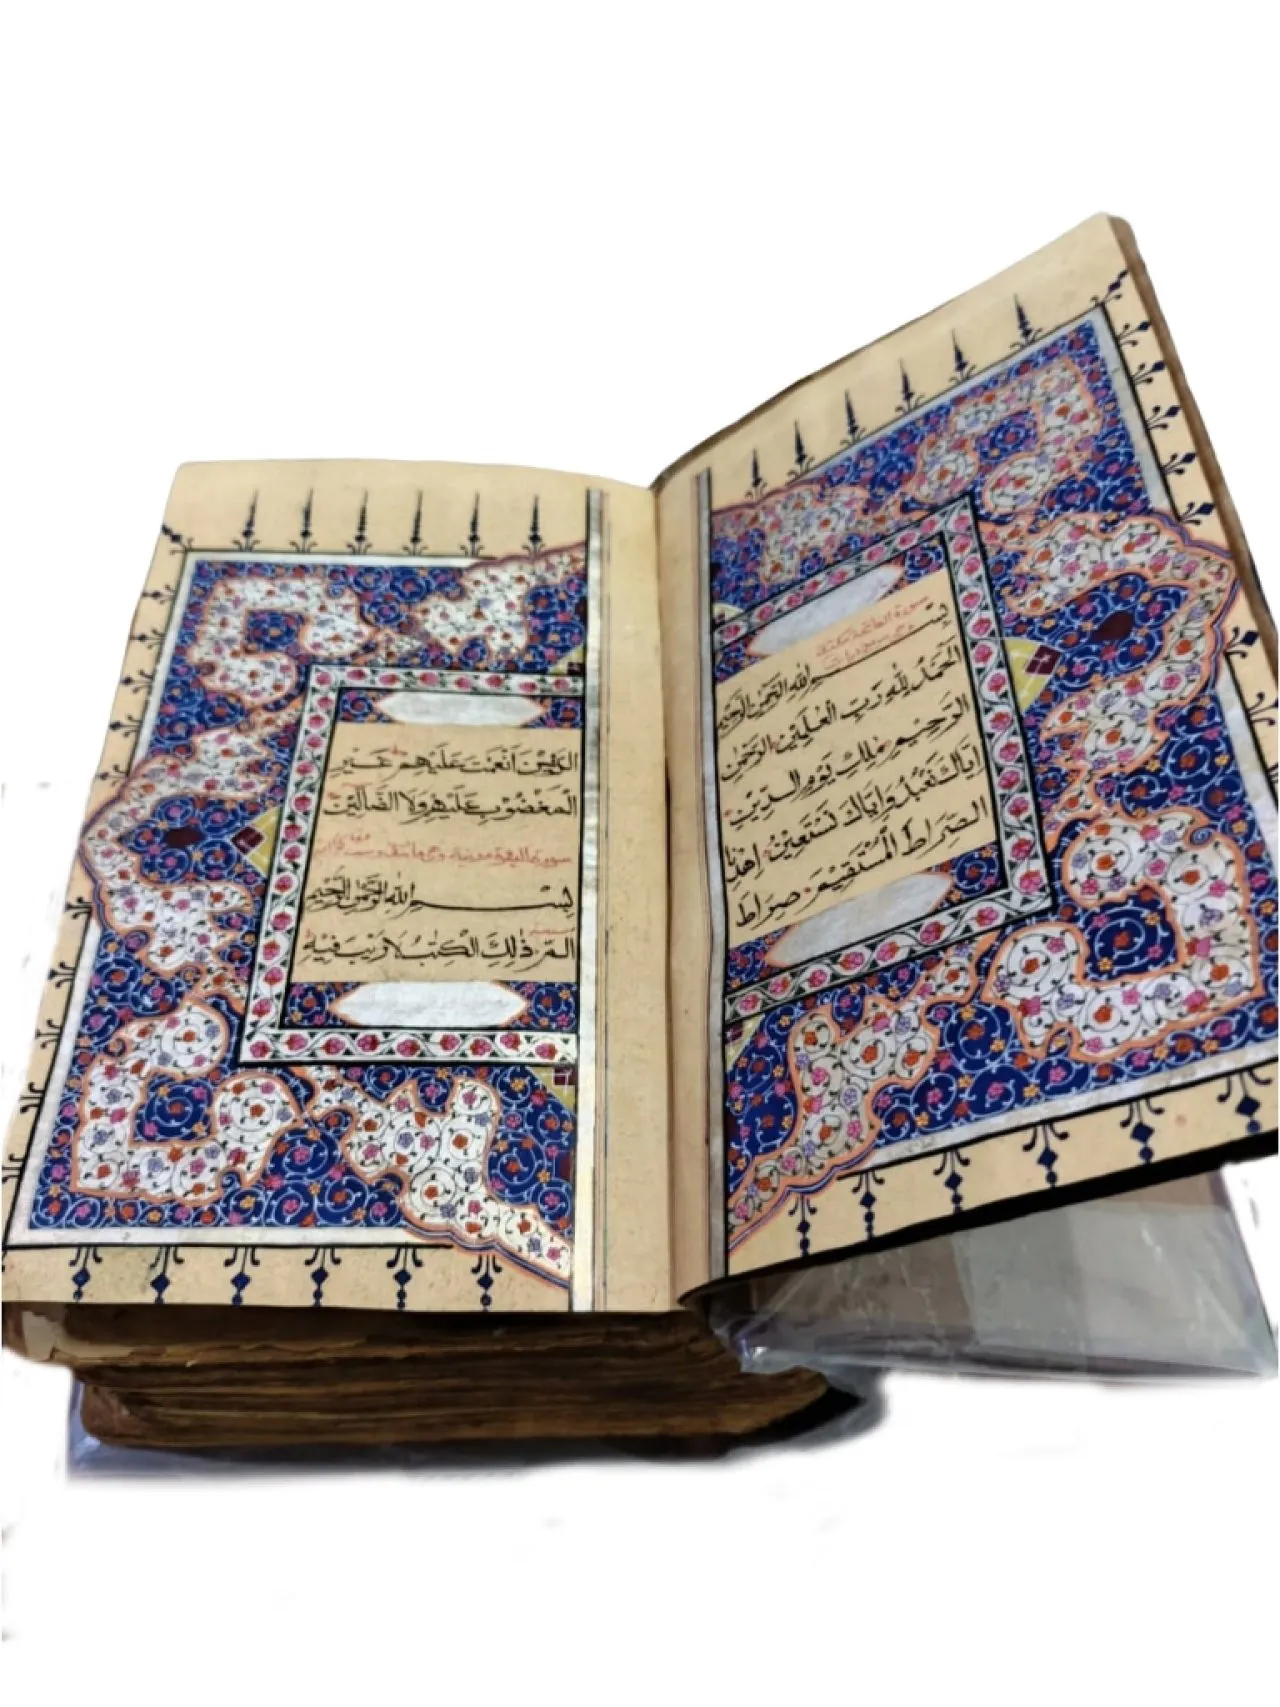 سورة الفاتحة مكية
وهي سبع آيات
بِسْمِ اللهِ الرَّحْمٰنِ الرَّحِيمِ
اَلْحَمْدُ لِلّٰهِ رَبِّ الْعٰلَمِيْنَ الرَّحْمٰنِ
الرَّحِيْمِ مٰلِكِ يَوْمِ الدِّيْنِ
اِيَّاكَ نَعْبُدُ وَاِيَّاكَ نَسْتَعِيْنُ اِهْدِنَا
الصِّرَاطَ الْمُسْتَقِيْمَ صِرَاطَ
الَّذِيْنَ اَنْعَمْتَ عَلَيْهِمْ غَيْرِ
الْمَغْضُوْبِ عَلَيْهِمْ وَلَا الضَّآلِّيْنَ
سورة البقرة مدنية وهي
بِسْمِ اللهِ الرَّحْمٰنِ الرَّحِيمِ
الٓمّٓ ذٰلِكَ الْكِتٰبُ لَا رَيْبَ فِيْهِ